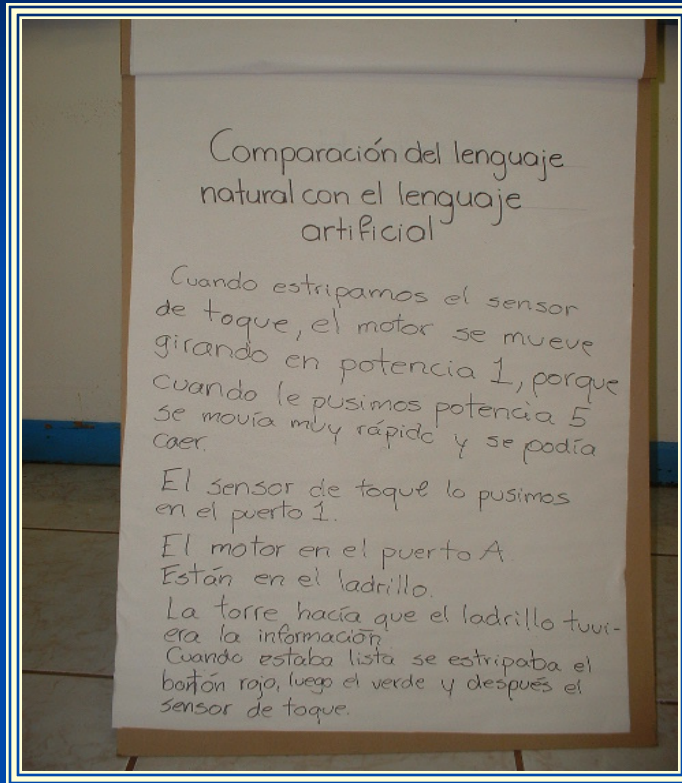 Comparación del lenguaje
natural con el lenguaje
artificial
Cuando estripamos el sensor
de toque, el motor se mueve
girando en potencia 1, porque
cuando le pusimos potencia 5
se movía muy rápido y se podía
caer.
El sensor de toque lo pusimos
en el puerto 1.
El motor en el puerto A
Están en el ladrillo.
La torre hacía que el ladrillo tuvi-
era la información
Cuando estaba lista se estripaba el
botón rojo, luego el verde y después el
sensor de toque.